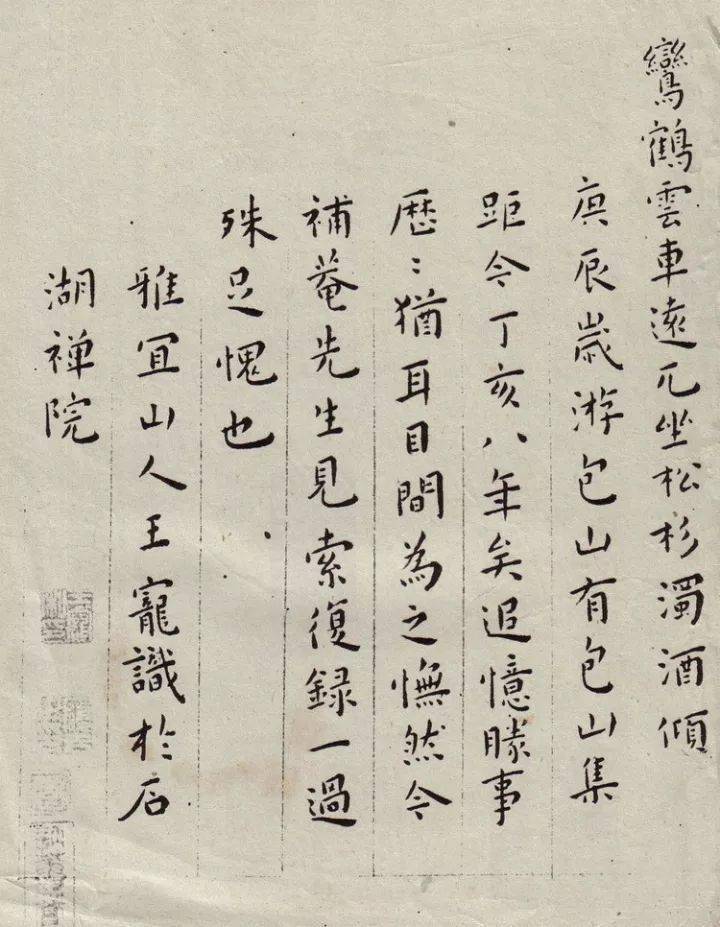 鸞鶴雲車遠兀坐松杉濁酒傾
庚辰歲游包山有包山集
距今丁亥八年矣追憶勝事
歷〻猶耳目間為之憮然今
補菴先生見索復録一過
殊足愧也
雅宜山人王寵識於石
湖禅院